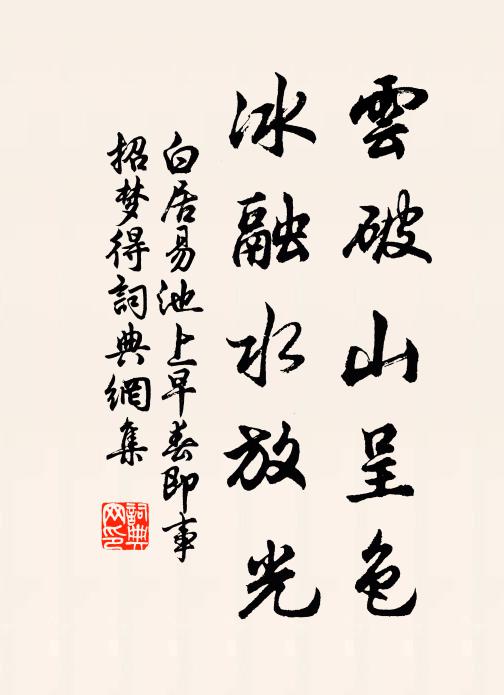 雲破山呈色
冰融水放光
白居易池上早春即事
招梦得詞典網集
詞典网印